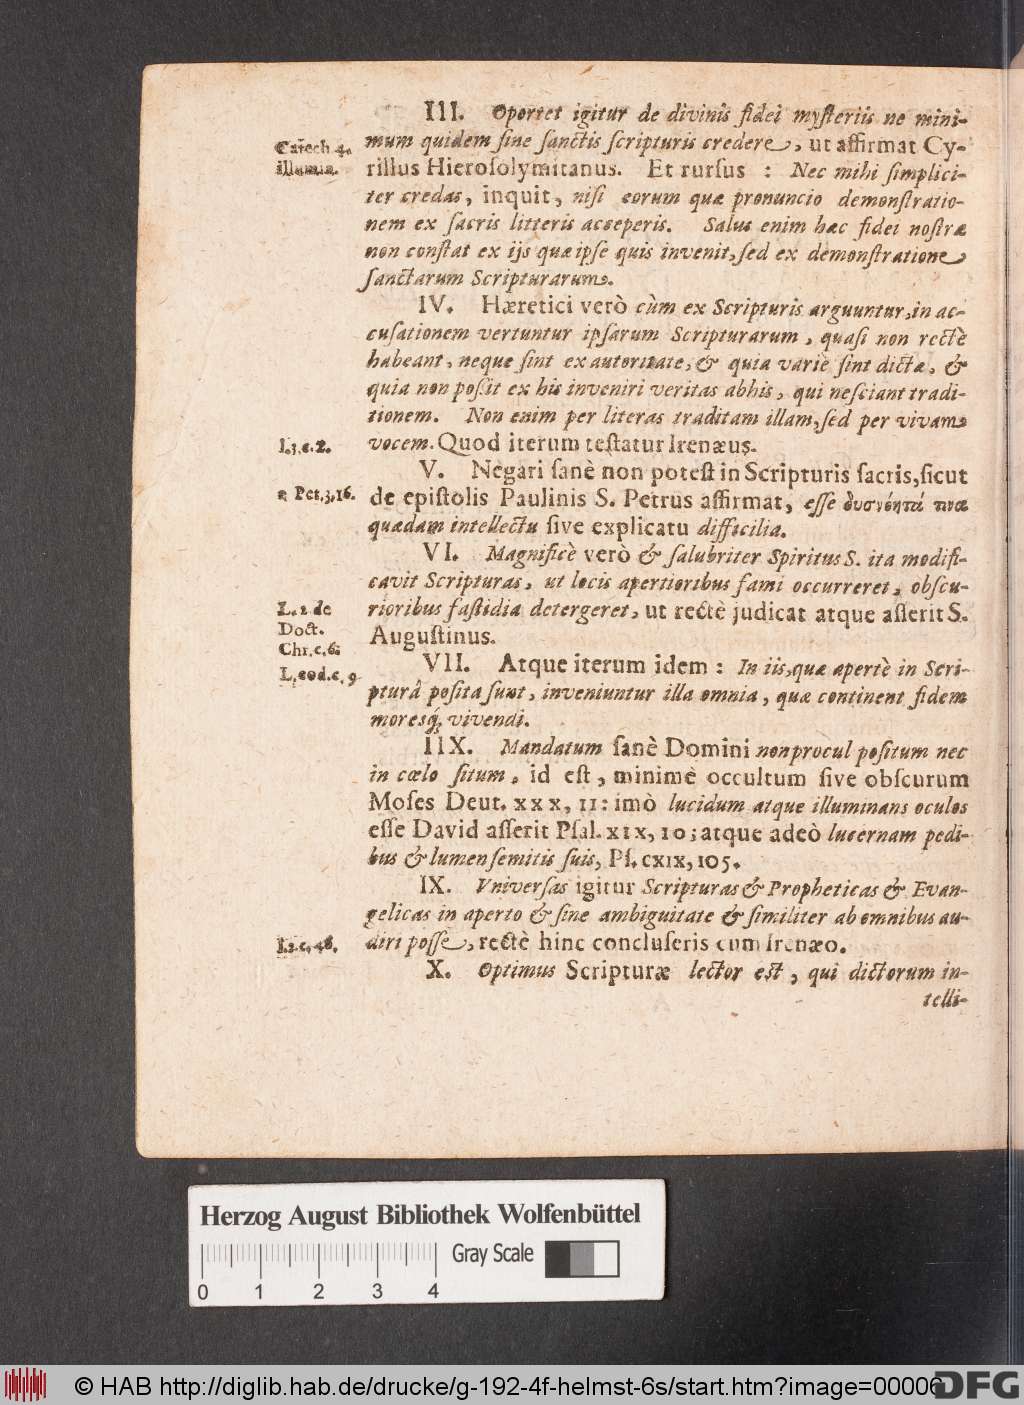 III. Oportet igitur de divinis fidei mysteriis ne mini-
Catech. 4.
illumin.
mum quidem sine sanctis scripturis credere, ut affirmat Cy-
rillus Hierosolymitanus. Et rursus : Nec mihi simplici-
ter credas, inquit, nisi eorum quæ pronuncio demonstratio-
nem ex sacris litteris acceperis. Salus enim hæc fidei nostræ
non constat ex ijs quæ ipse quis invenit, sed ex demonstratione
sanctarum Scripturarum.
IV. Hæretici verò cùm ex Scripturis arguuntur, in ac-
cusationem vertuntur ipsarum Scripturarum, quasi non rectè
habeant, neque sint ex autoritate, & quia variè sint dictæ, &
quia non possit ex his inveniri veritas ab his, qui nesciant tradi-
tionem. Non enim per literas traditam illam, sed per vivam
l.3.c.2.
vocem. Quod iterum testatur Irenæus.
V. Negari sanè non potest in Scripturis sacris, sicut
2 Pet. 3, 16.
de epistolis Paulinis S. Petrus affirmat, esse δυσνόητά τινα
quædam intellectu sive explicatu difficilia.
VI. Magnificè verò & salubriter Spiritus S. ita modifi-
cavit Scripturas, ut locis apertioribus fami occurreret, obscu-
L. 2 de
Doct.
Chr. c. 6.
rioribus fastidia detergeret, ut rectè judicat atque asserit S.
Augustinus.
L. eod. c. 9.
VII. Atque iterum idem : In iis, quæ apertè in Scri-
pturâ posita sunt, inveniuntur illa omnia, quæ continent fidem
moresq́; vivendi.
IIX. Mandatum sanè Domini non procul positum nec
in cœlo situm, id est, minimè occultum sive obscurum
Moses Deut. XXX, 11: imò lucidum atque illuminans oculos
esse David asserit Psal. XIX, 10; atque adeò lucernam pedi-
bus & lumen semitis suis, Ps. CXIX, 105.
IX. Vniversas igitur Scripturas & Propheticas & Evan-
gelicas in aperto & sine ambiguitate & similiter ab omnibus au-
l.2.c.46.
diri posse, rectè hinc concluseris cum Irenæo.
X. Optimus Scripturæ lector est, qui dictorum in-
telli-
Herzog August Bibliothek Wolfenbüttel
Gray Scale
0 1 2 3 4
© HAB http://diglib.hab.de/drucke/g-192-4f-helmst-6s/start.htm?image=00006
DFG